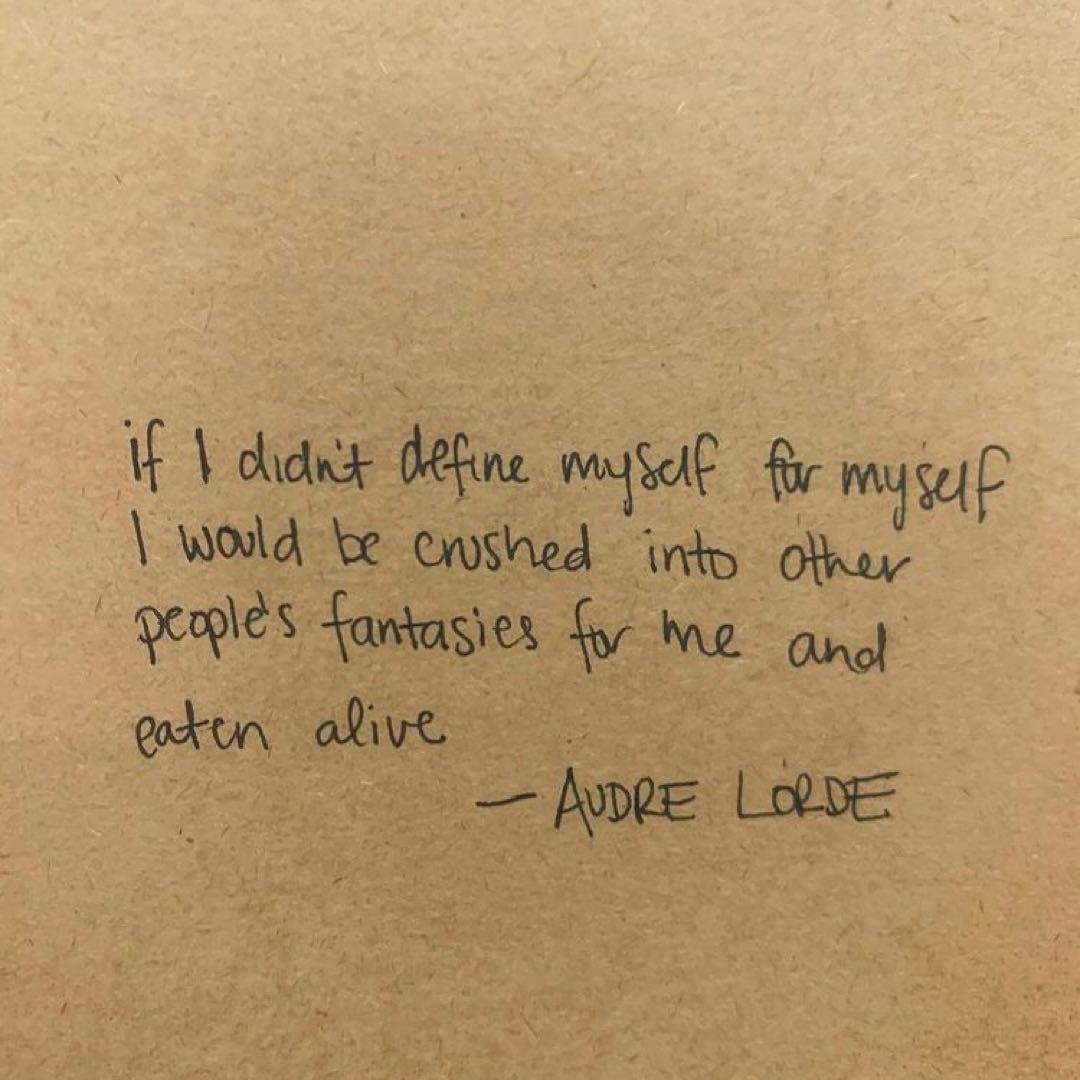 if I didn't define myself for myself
I would be crushed into other
people's fantasies for me and
eaten alive
— AUDRE LORDE